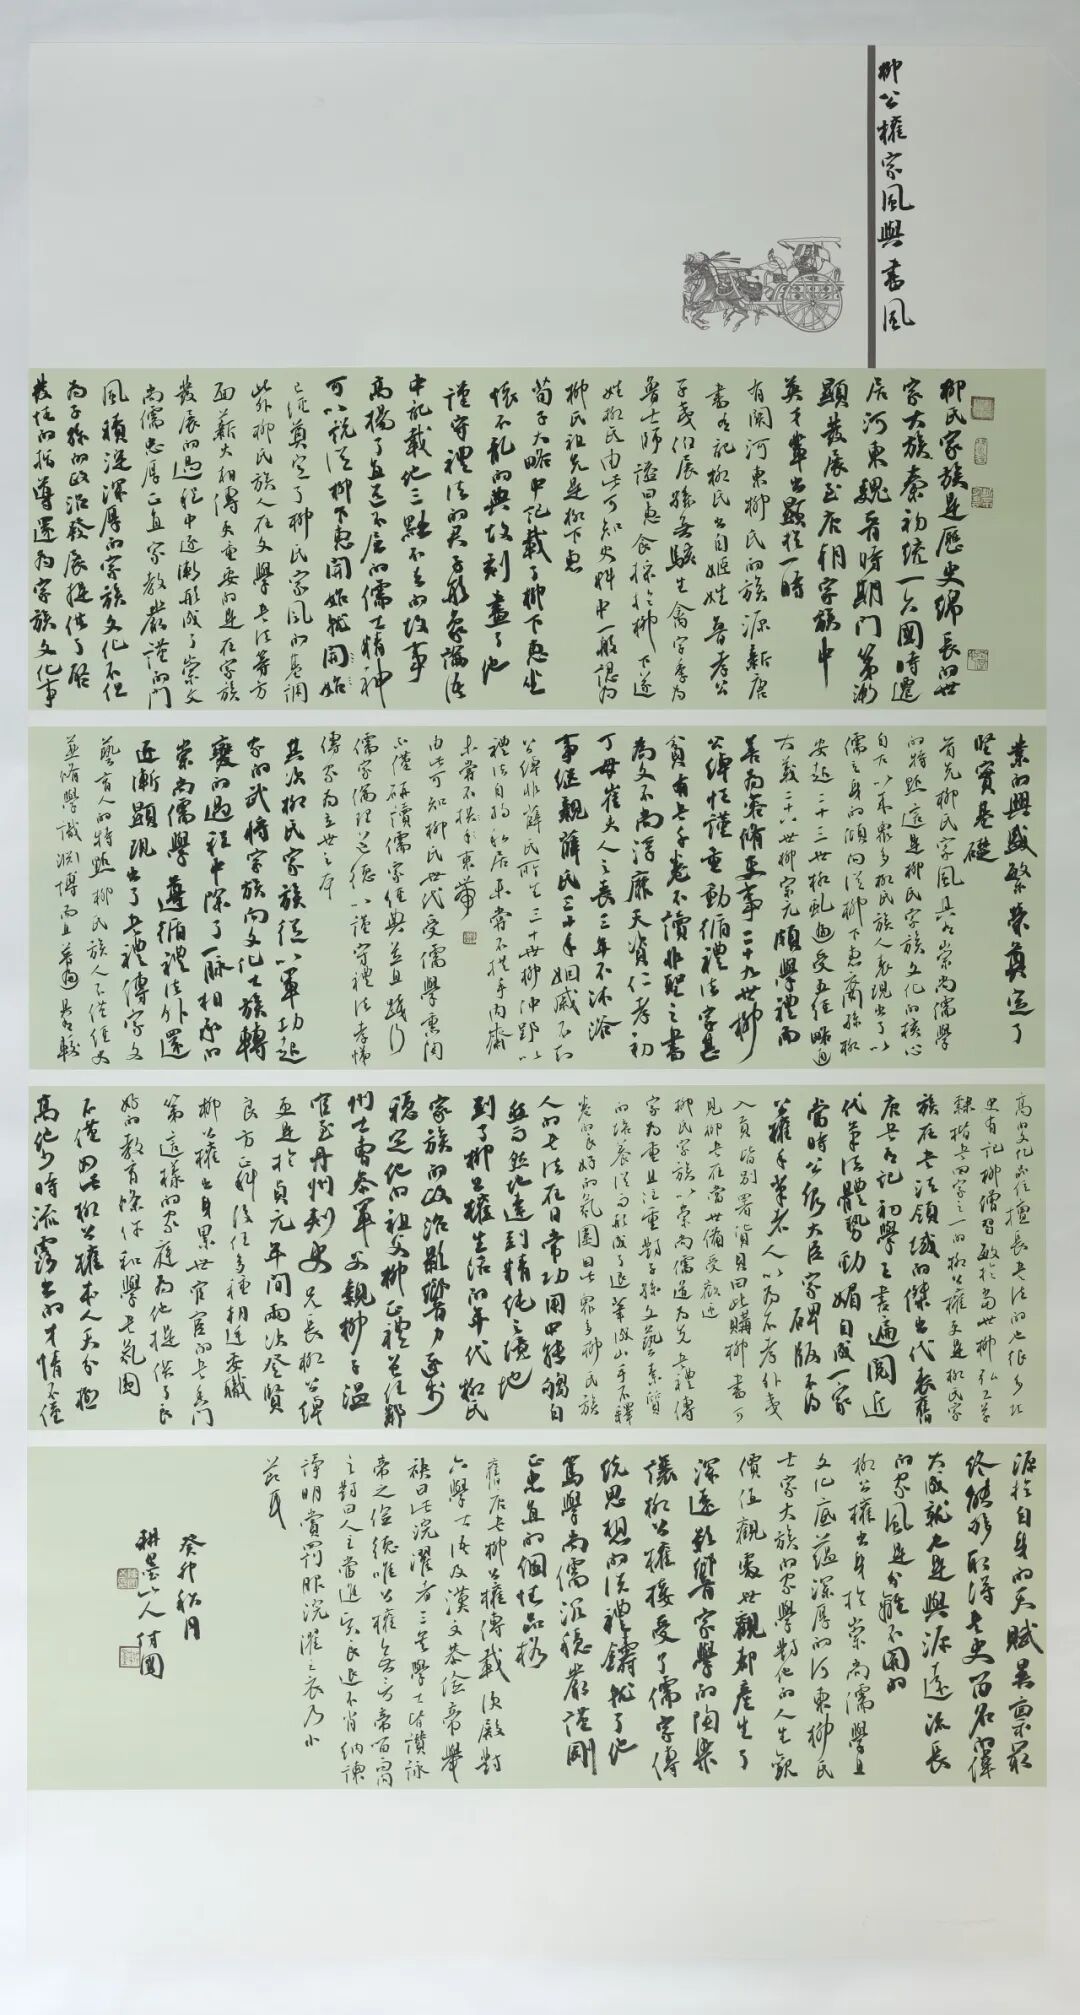 柳公權家風與書風
柳氏家族是歷史綿長的世
家大族秦初統一六國時遷
居河東魏晉時期門第漸
顯發展至唐朝家族中
英才輩出顯於一時
有關河東柳氏的族源新唐
書有記柳氏出自姬姓魯孝公
子夷伯展孫無駭生禽字季為
魯士師諡曰惠食採於柳下遂
姓柳氏由此可知史料中一般認為
柳氏祖先是柳下惠
荀子大略中記載了柳下惠坐
懷不亂的典故刻畫了他
謹守禮法的君子形象論語
中記載他三黜不去的故事
高揚了直道不屈的儒士精神
可以說從柳下惠開始就開始
已經奠定了柳氏家風的基調
此外柳氏族人在文學書法等方
面薪火相傳更重要的是在家族
發展的過程中逐漸形成了崇文
尚儒忠厚正直家教嚴謹的門
風積淀深厚的家族文化不但
為子孫的政治發展提供了啓
發性的指導還為家族文化事
業的興盛繁榮奠定了
堅實基礎
首先柳氏家風具有崇尚儒學
的特點這是柳氏家族文化的核心
自古以來眾多柳氏族人表現出了以
儒立身的傾向從柳下惠裔孫柳
安起二十三世柳虬遍受五經略通
大義二十六世柳宗元頗學禮而
善為容修吏事二十九世柳
公綽性謹重動循禮法家甚
貧有書千卷不讀非聖之書
為文不尚浮靡天資仁孝初
丁母崔夫人之喪三年不沐浴
事繼親薛氏三十年姻戚不知
公綽非薛氏所生三十世柳仲郢以
禮法自持私居未嘗不拱手內齋
未嘗不束帶
由此可知柳氏世代受儒學熏陶
不僅研讀儒家經典並且踐行
儒家倫理道德以謹守禮法孝悌
傳家為立世之本
其次柳氏家族從以軍功起
家的武將家族向文化士族轉
變的過程中除了一脈相承的
崇尚儒學遵循禮法外還
逐漸顯現出了書禮傳家文
藝育人的特點柳氏族人不僅經史
並修學識淵博而且普遍具有較
高的文化品位擅長書法的也很多北
史有記柳僧習敏於當世柳弘工草
隸楷書四家之一的柳公權更是柳氏家
族在書法領域的傑出代表舊
唐書有記初學王書遍閱近
代筆法體勢勁媚自成一家
當時公卿大臣家碑版不得
公權手筆者人以為不孝外夷
入貢皆別署貨貝曰此購柳書可
見柳書在當世備受歡迎
柳氏家族以崇尚儒道為先書禮傳
家為重且注重對子孫文藝素質
的培養從而形成了退筆成山手不釋
卷的良好的氛圍因此眾多柳氏族
人的書法在日常功用中能夠自
然而然地達到精純之境地
到了柳公權生活的年代柳氏
家族的政治影響力逐步
穩定他的祖父柳正禮曾任邠
州士曹參軍父親柳子溫
官至丹州刺史兄長柳公綽
更是於貞元年間兩次登賢
良方正科後任多種相近要職
柳公權出身累世官宦的書香門
第這樣的家庭為他提供了良
好的教育條件和學書氛圍
不僅因此柳公權本人天分極
高他少時流露出的才情不僅
源於自身的天賦異稟最
終能夠取得書史留名的偉
大成就也是與源遠流長
的家風是分離不開的
柳公權出身於崇尚儒學且
文化底蘊深厚的河東柳氏
士家大族的家學對他的人生觀
價值觀處世觀都產生了
深遠影響家學的陶染
讓柳公權接受了儒家傳
統思想的洗禮鑄就了他
篤學尚儒沉穩嚴謹剛
正忠直的個性品格
舊唐書柳公權傳載便殿對
六學士語及漢文恭儉帝舉
袂曰此浣濯者三矣學士皆讚詠
帝之儉德唯公權無言帝留問
之對曰人主當進賢良退不肖納諫
諍明賞罰服浣濯之衣乃小
節耳
癸卯秋月
耕墨山人付國